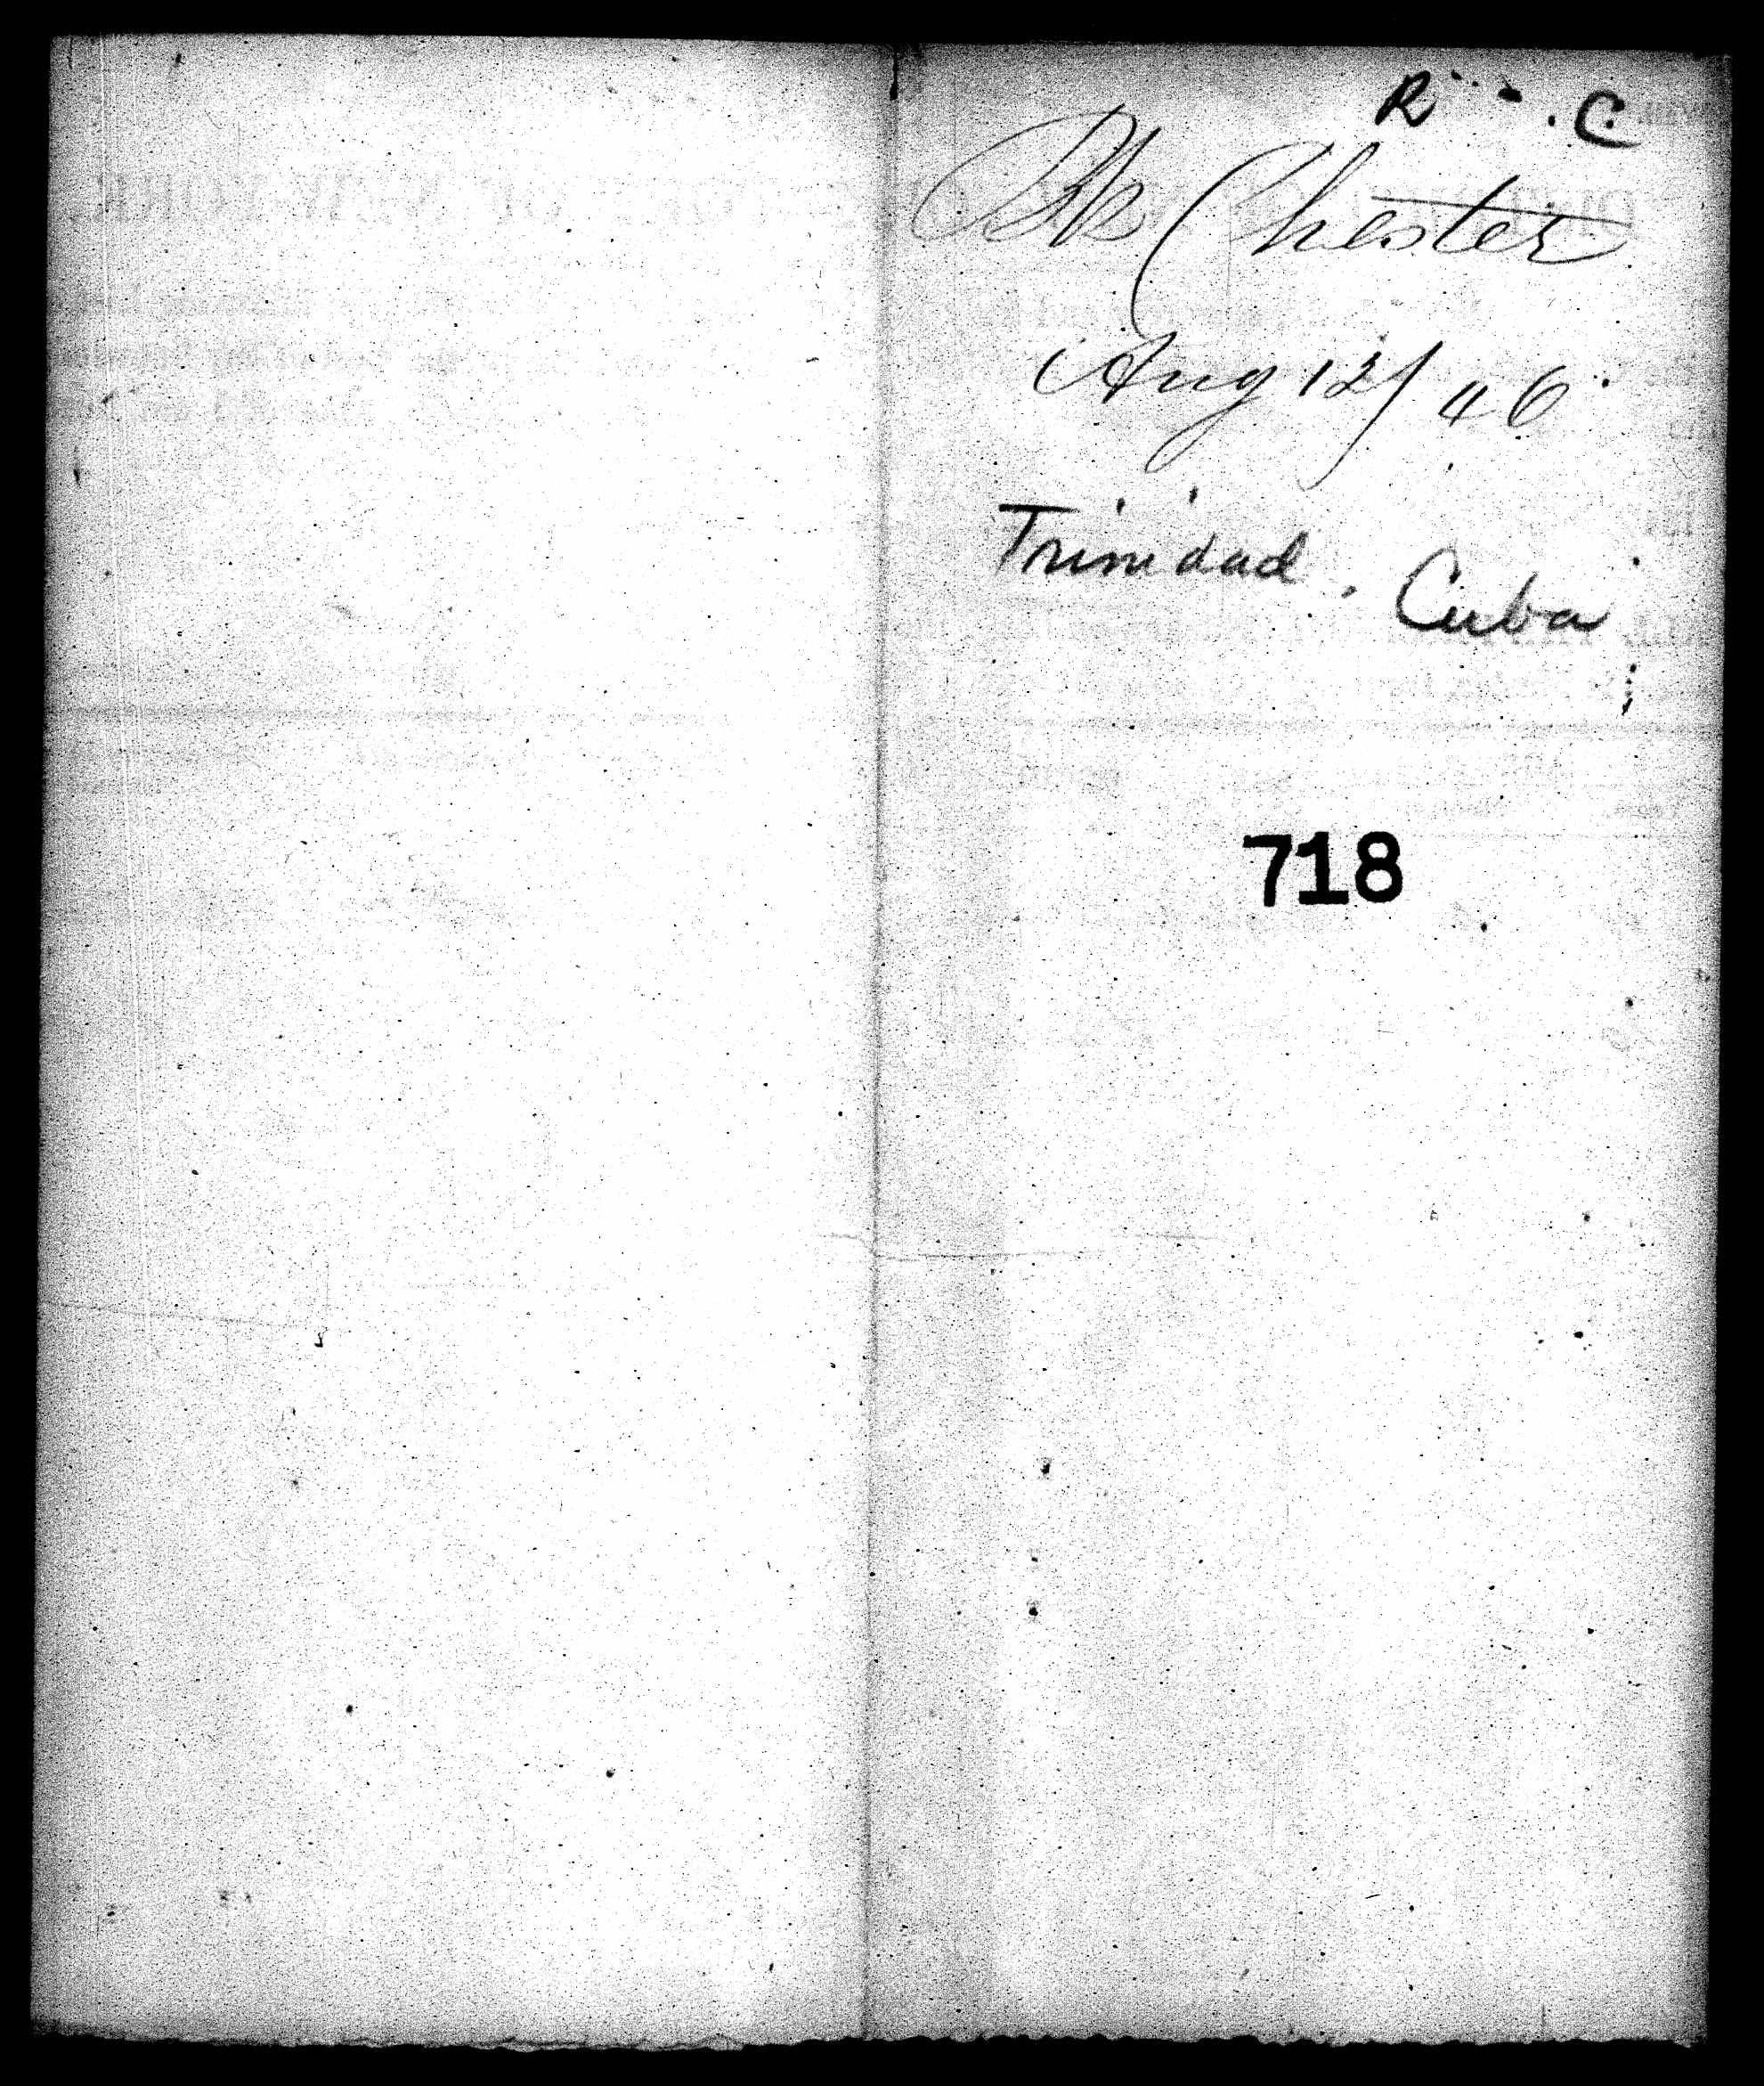 R C
Bk Chester
Aug 12/46
Trinidad, Cuba
718